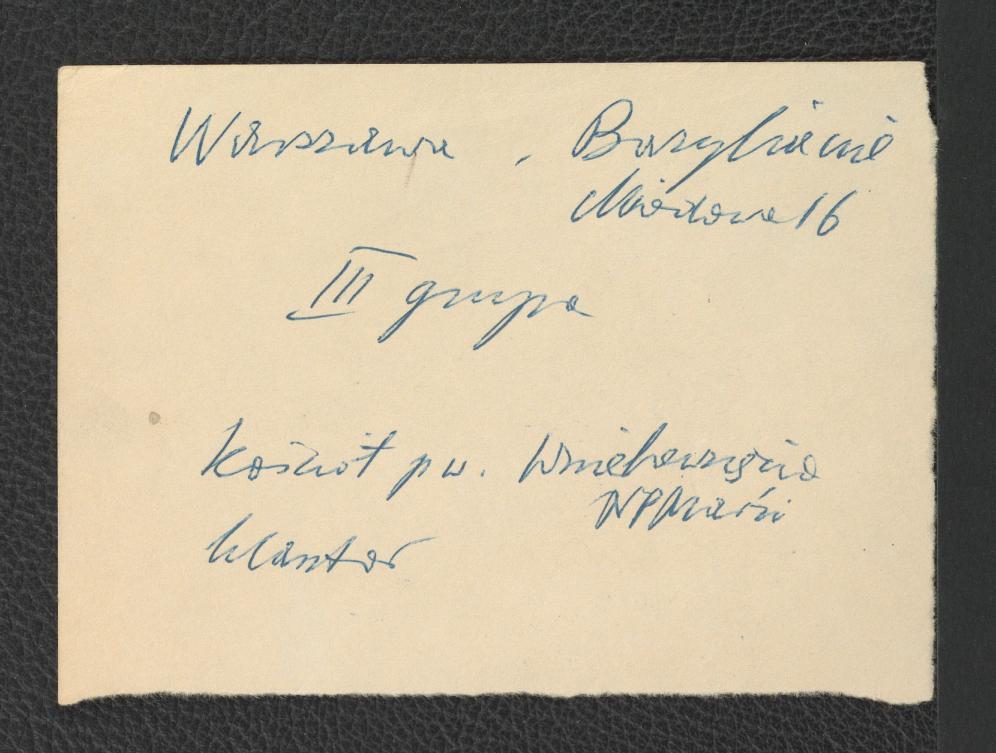 Warszawa, Bazylianie
Miodowa 16
III grupa
Kościół pw. Wniebowzięcia
NPMarii
klasztor